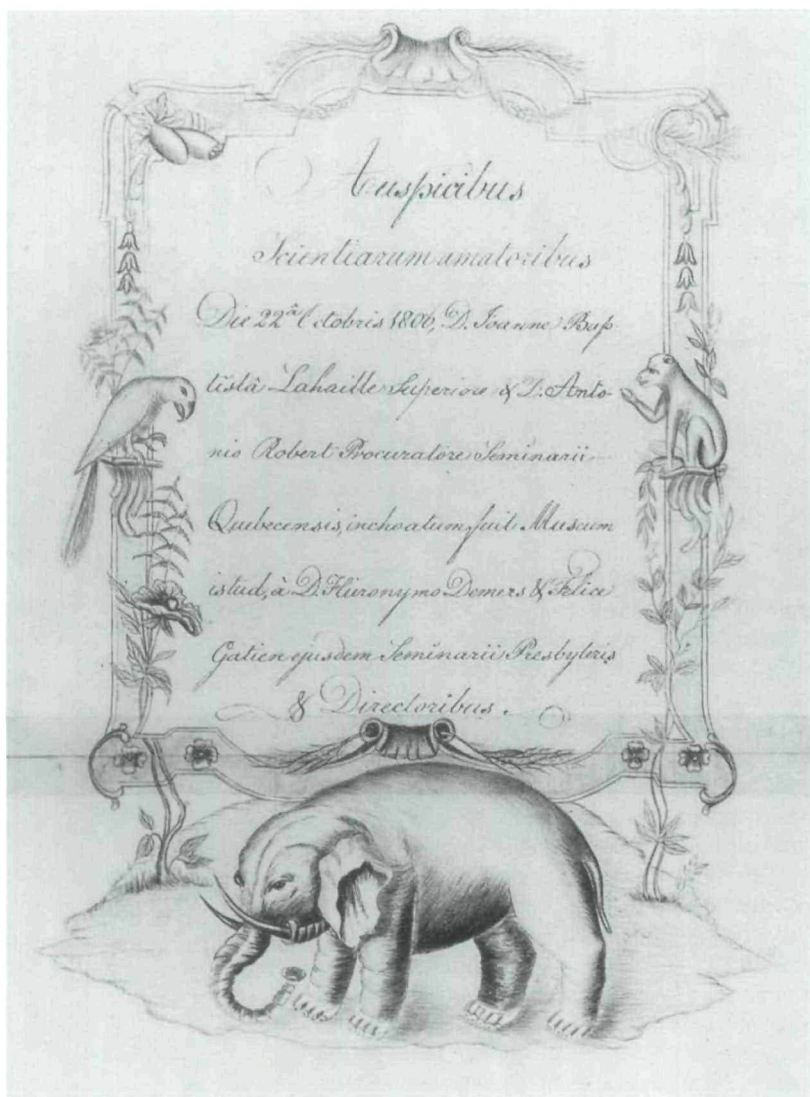 Auspicibus
Scientiarum amatoribus
Die 22â Octobris 1806, D. Joanne Bap
tistâ Lahaille Superiore & D. Anto-
nio Robert Procuratore Seminarii
Quebecensis, inchoatum fuit Museum
istud, à D. Hieronymo Demers & Felice
Gatien ejusdem Seminarii Presbyteris
& Directoribus.